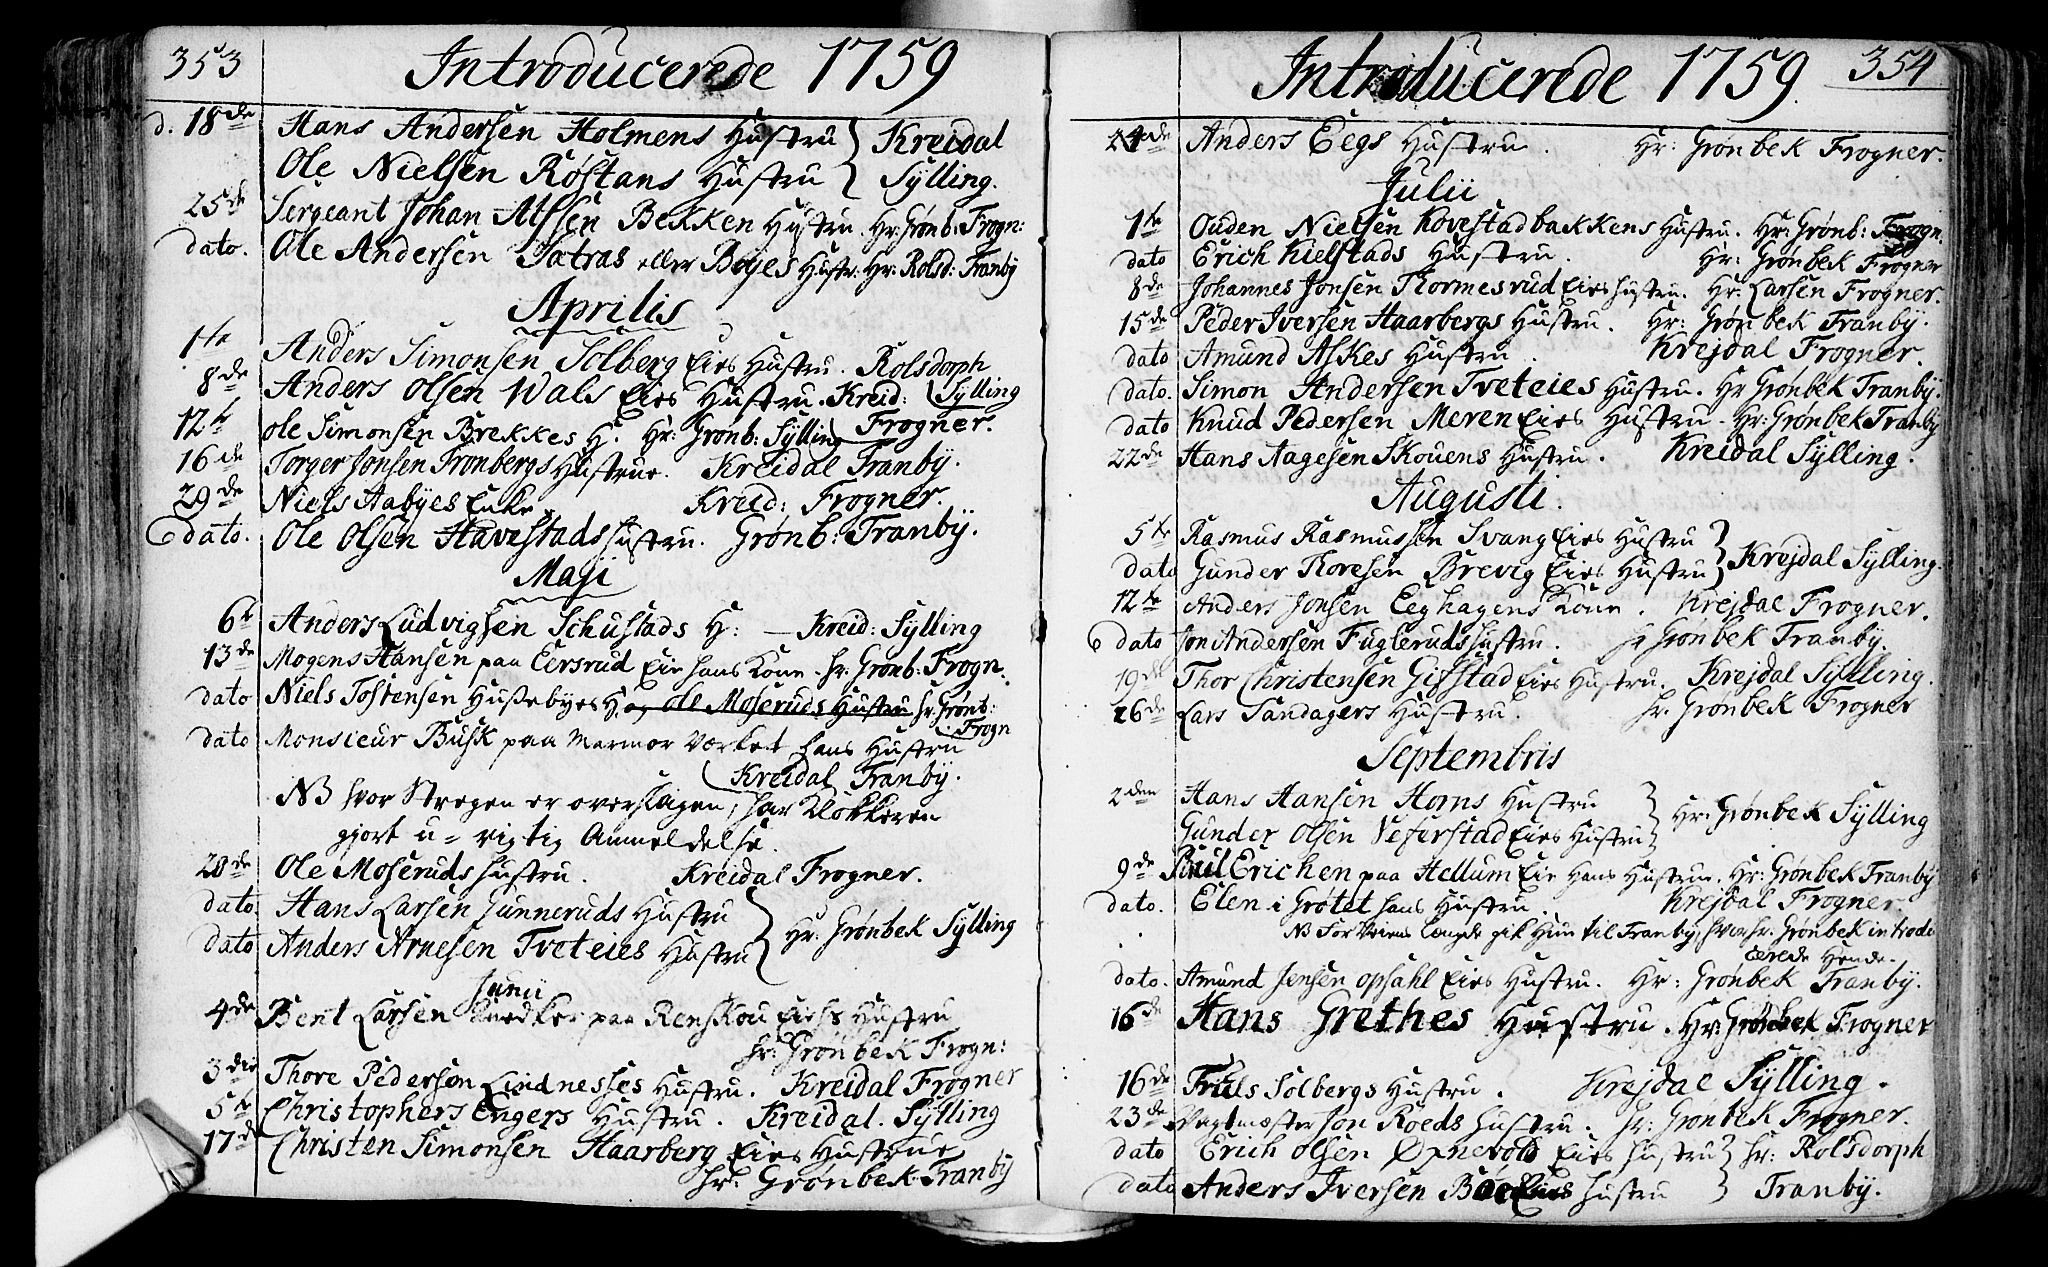 353 Introducerede 1759
d. 18de Hans Andersen Holmens Hustru } Kreidal
Ole Nielsen Røstans Hustru } Sylling.
25de Sergeant Johan Alfsen Bekken Hustru. Hr: Grønb: Frogn:
dato. Ole Andersen Satras eller Boyes Hustr: Hr: Rolsd: Tranby
Aprilis
1te Anders Simonsen Solberg Eies Hustru. Rolsdorph
8de Anders Olsen Wals Eies Hustru. Kreid: Sylling
12te Ole Simonsen Brekkes H. Hr: Grønb: Sylling Frogner.
16de Torger Jonsen Tronbergs Hustrue. Kreidal Tranby.
29de Niels Aabyes Enke. Kreid: Frogner.
dato. Ole Olsen Havestads Hustru. Grønb: Tranby.
Maji
6te Anders Ludvigsen Schustads H: — Kreid: Sylling
13de Mogens Hansen paa Eersrud Eie hans Kone. Hr. Grønb: Frogn.
dato Niels Tostensen Hussebyes H. og Ole Moseruds Hustru Hr. Grønb:
Frogn
dato Monsieur Busk paa Marmor Værket hans Hustru
Kreidal Tranby.
NB hvor Stregen er overslagen, har Klokkeren
giort u-rigtig Anmeldelse.
20de Ole Moseruds Hustru. Kreidal Frogner.
dato. Hans Larsen Gunneruds Hustru } Hr: Grønbek Sylling
dato Anders Arnesen Tveteies Hustru }
Junii
4de Bent Larsen Snedker paa Renskou Eies Hustru
Hr: Grønbek Frogn:
3die Thore Pedersen Lindnesses Hustru. Kreidal Frogner
5te Christophers Engers Hustru. Kreidal. Sylling
17de Christen Simonsen Haarberg Eies Hustrue
Hr. Grønbek Tranby
Introducerede 1759. 354
24de Anders Eegs Hustru. Hr: Grønbek Frogner.
Julii
1te Ouden Nielsen Hovestadbakkens Hustru. Hr: Grønb: Frogn.
dato Erich Kielstads Hustru. Hr: Grønbek Frogner
8de Johannes Jonsen Thormesrud Eies Hustru. Hr. Larsen Frogner.
15de Peder Iversen Haarbergs Hustru. Hr: Grønbek Tranby.
dato Amund Askes Hustru. Krejdal Frogner.
dato. Simon Andersen Tveteies Hustru. Hr Grønbek Tranby.
dato Knud Pedersen Meren Eies Hustru. Hr: Grønbek Tranby
22de Hans Aagesen Skouens Hustru. Kreidal Sylling.
Augusti.
5te Rasmus Rasmussen Svang Eies Hustru } Krejdal Sylling.
dato Gunder Thoresen Brevig Eies Hustru }
12te Anders Jonsen Eeghagens Kone. Krejdal Frogner.
dato Jon Andersen Fugleruds Hustru. Hr Grønbek Tranby.
19de Thor Christensen Gifstad Eies Hustru. Krejdal Sylling.
26de Lars Sandagers Hustru. Hr. Grønbek Frogner
Septembris
2den Hans Hansen Horns Hustru } Hr: Grønbek Sylling
Gunder Olsen Veferstad Eies Hustru }
9de Poul Erichen paa Hellum Eie hans Hustrue. Hr: Grønbek Tranby
dato. Elen i Grøtet hans Hustru. Krejdal Frogner.
NB For Veiens Længde gik Hun til Tranby, hvor Hr. Grønbek introdu
cerede Hende.
dato. Amund Jensen Opsahl Eies Hustru. Hr: Grønbek Tranby.
16de Hans Grethes Hustru. Hr: Grønbek Frogner
16de Truls Solbergs Hustru. Krejdal Sylling.
23de Vagtmæster Jon Roeds Hustru. Hr: Grønbek Frogner.
dato Erich Olsen Ørnevold Eies Hustru } Hr: Rolsdorph
dato Anders Iversen Eies Hustru } Tranby.